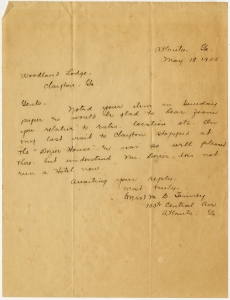 Atlanta, Ga.
May 18, 19
Woodland Lodge.
Clayton, Ga
Gents.
Noted your item in Sunday
paper & would be glad to hear from
you relative to rates, location etc. On
my last visit to Clayton stopped at
the "Dozier House" & was so well pleased
there, but understand Mrs Dozier does not
run a Hotel now.
Awaiting your reply.
Most truly,
Mrs M. B.
Central Ave
Atlanta Ga